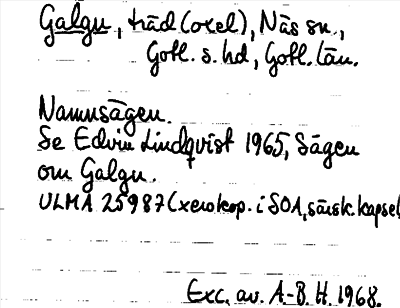 Galgu, träd (oxel), Näs sn.,
Gotl. s. hd, Gotl. län.
Namnsägen.
Se Edvin Lindqvist 1965, Sägen
om Galgu.
ULMA 25987 (xerokop. i SOA, särsk. kapsel
Exc. av. A.-B. H. 1968.